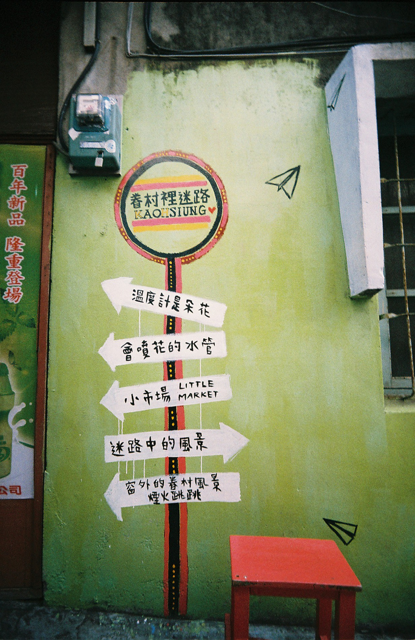 百年新品 隆重登場
公司
眷村裡迷路
KAOHSIUNG
溫度計是朵花
會噴花的水管
小市場 LITTLE MARKET
迷路中的風景
窗外的眷村風景
煙火跳跳